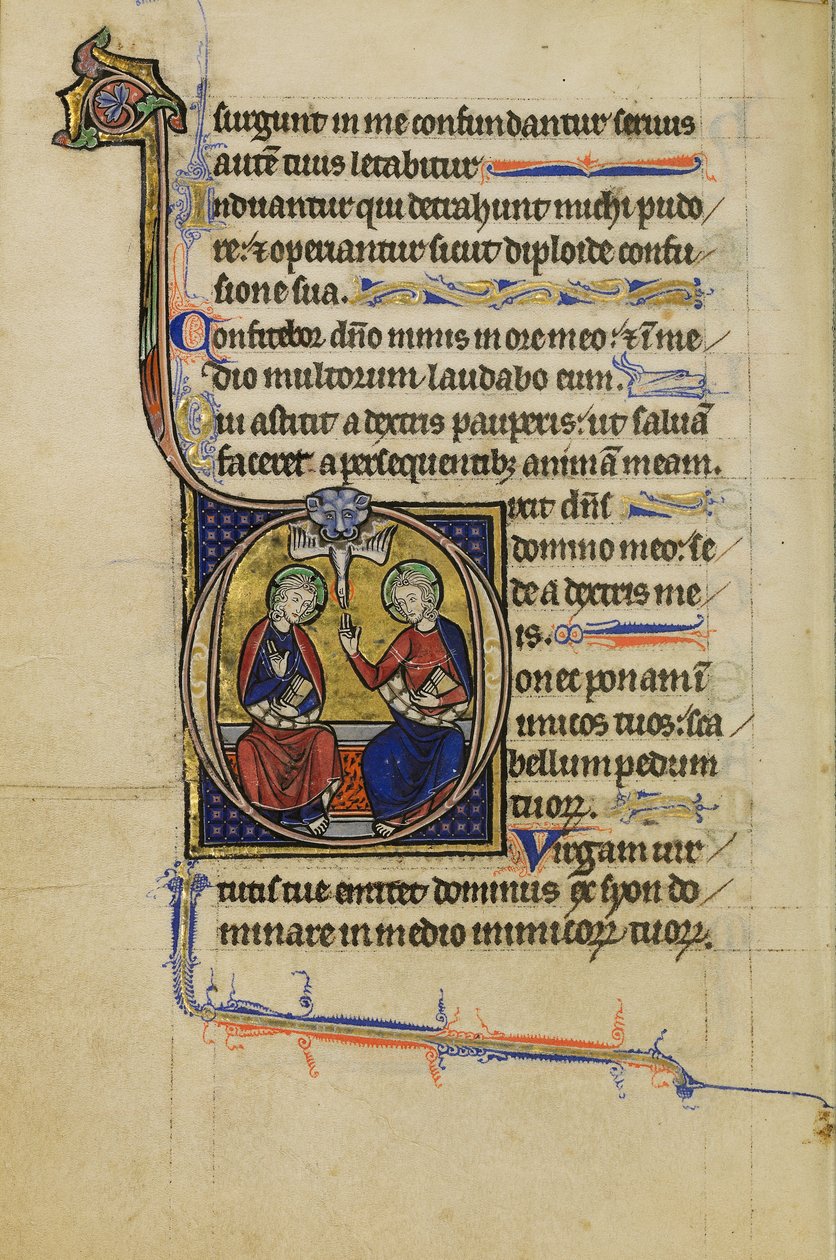 surgunt in me confundantur seruus
autē tuus letabitur
Induantur qui detrahunt michi pudo
re: ⁊ operiantur sicut diploide confu
sione sua.
Confitebor dn̄o nimis in ore meo: ⁊ ī me
dio multorum laudabo eum.
Qui astitit a dextris pauperis: ut saluā
faceret a persequentibꝫ animā meam.
Dixit dn̄s
domino meo: se
de a dextris me
is.
Donec ponam ī
imicos tuos: sca
bellum pedum
tuoꝝ.
Virgam uir
tutis tue emittet dominus ex syon do
minare in medio inimicoꝝ tuoꝝ.